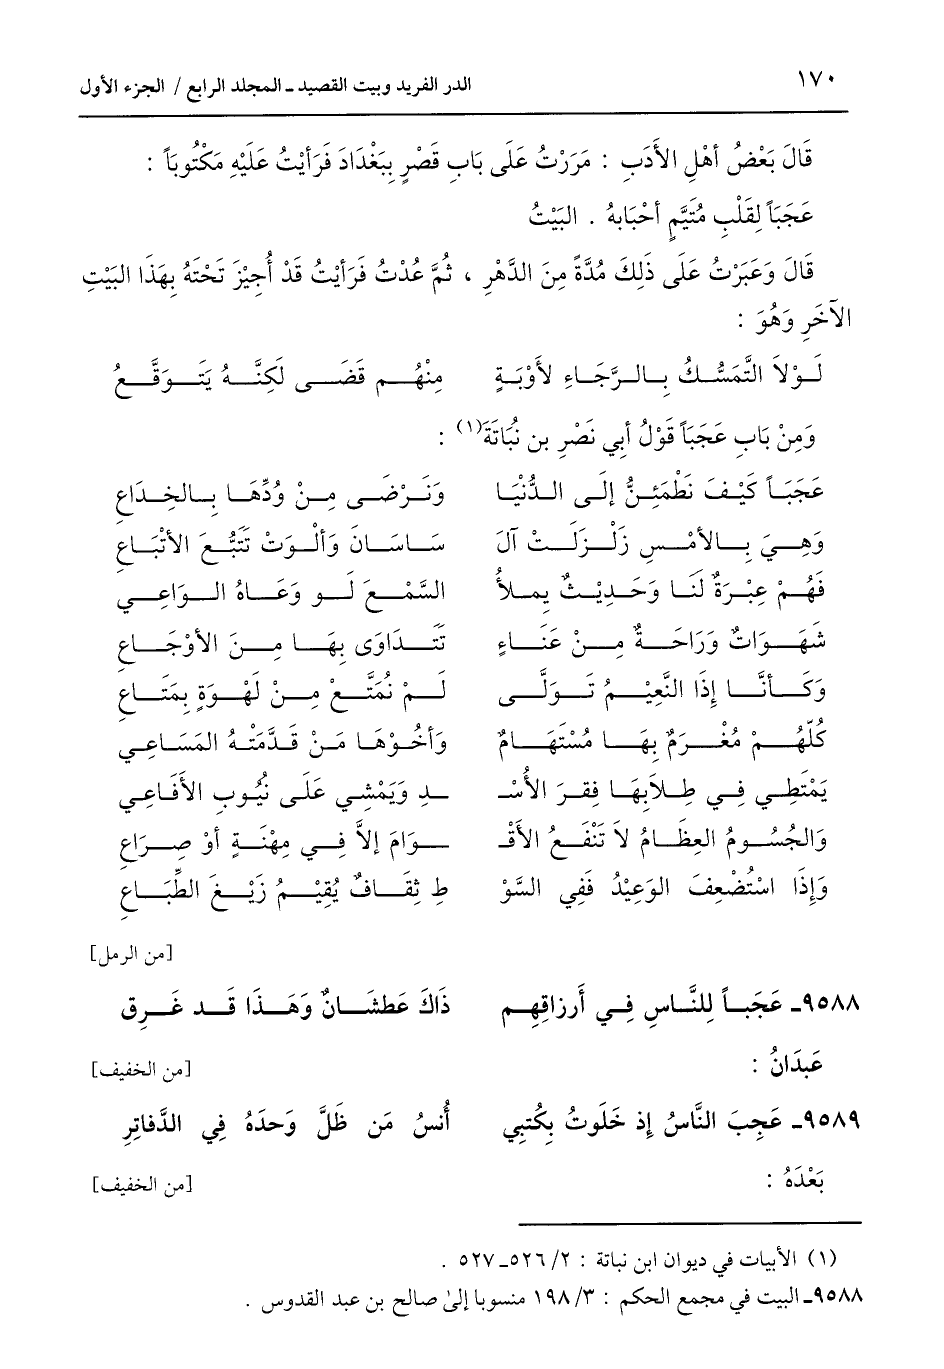 ١٧٠ الدر الفريد وبيت القصيد ـ المجلد الرابع / الجزء الأول
قَالَ بَعْضُ أَهْلِ الأَدَبِ : مَرَرْتُ عَلَى بَابِ قَصْرٍ بِبَغْدَادَ فَرَأَيْتُ عَلَيْهِ مَكْتُوبَاً :
عَجَبَاً لِقَلْبِ مُتَيَّمٍ أحْبَابهُ . البَيْتُ
قَالَ وَعَبَرْتُ عَلَى ذَلِكَ مُدَّةً مِنَ الدَّهْرِ ، ثُمَّ عُدْتُ فَرَأَيْتُ قَدْ أُجِيْزَ تَحْتَهُ بِهَذَا البَيْتِ
الآخَرِ وَهُوَ :
لَوْلاَ التَّمَسُّكُ بِالرَّجَاءِ لأَوْبَةٍ مِنْهُم قَضَى لَكِنَّهُ يَتَوَقَّعُ
وَمِنْ بَابِ عَجَبَاً قَوْلُ أبي نَصْرِ بن نُبَاتَةَ(١) :
عَجَبَاً كَيْفَ نَطْمَئِنُّ إلَى الدُّنْيَا وَنَرْضَى مِنْ وُدّهَا بِالخِدَاعِ
وَهِيَ بِالأمْسِ زَلْزَلَتْ آلَ سَاسَانَ وَألْوَتْ تَتَبُّعَ الأتْبَاعِ
فَهُمْ عِبْرَةٌ لَنَا وَحَدِيْثٌ يملأُ السَّمْعَ لَو وَعَاهُ الوَاعِي
شَهَوَاتٌ وَرَاحَةٌ مِنْ عَنَاءٍ نَتَدَاوَى بِهَا مِنَ الأوْجَاعِ
وَكَأنَّا إذَا النَّعِيْمُ تَوَلَّى لَمْ نُمَتَّعْ مِنْ لَهْوَةٍ بِمَتَاعِ
كُلُّهُمْ مُغْرَمٌ بِهَا مُسْتَهَامٌ وَأخُوْهَا مَنْ قَدَّمَتْهُ المَسَاعِي
يَمْتَطِي فِي طِلاَبِهَا فِقرَ الأُسْـ ـدِ وَيَمْشِي عَلَى نُيُوبِ الأَفَاعِي
وَالجُسُومُ العِظَامُ لاَ تَنْفَعُ الأقْـ ـوَامَ إلاَّ فِي مِهْنَةٍ أوْ صِرَاعِ
وَإذَا اسْتُضْعِفَ الوَعِيْدُ فَفِي السَّوْ طِ ثِقَافٌ يُقِيْمُ زَيْغَ الطِّبَاعِ
[من الرمل]
٩٥٨٨ـ عَجَبَاً لِلنَّاسِ فِي أَرزاقِهِم ذَاكَ عَطشَانٌ وَهَذَا قَد غَرِق
عَبدَانُ : [من الخفيف]
٩٥٨٩ـ عَجِبَ النَّاسُ إذ خَلَوتُ بِكُتبِي أُنسُ مَن ظَلَّ وَحدَهُ فِي الدَّفاتِرِ
بَعْدَهُ : [من الخفيف]
(١) الأبيات في ديوان ابن نباتة : ٢/ ٥٢٦ـ ٥٢٧ .
٩٥٨٨ـ البيت في مجمع الحكم : ٣/ ١٩٨ منسوبا إلىٰ صالح بن عبد القدوس .